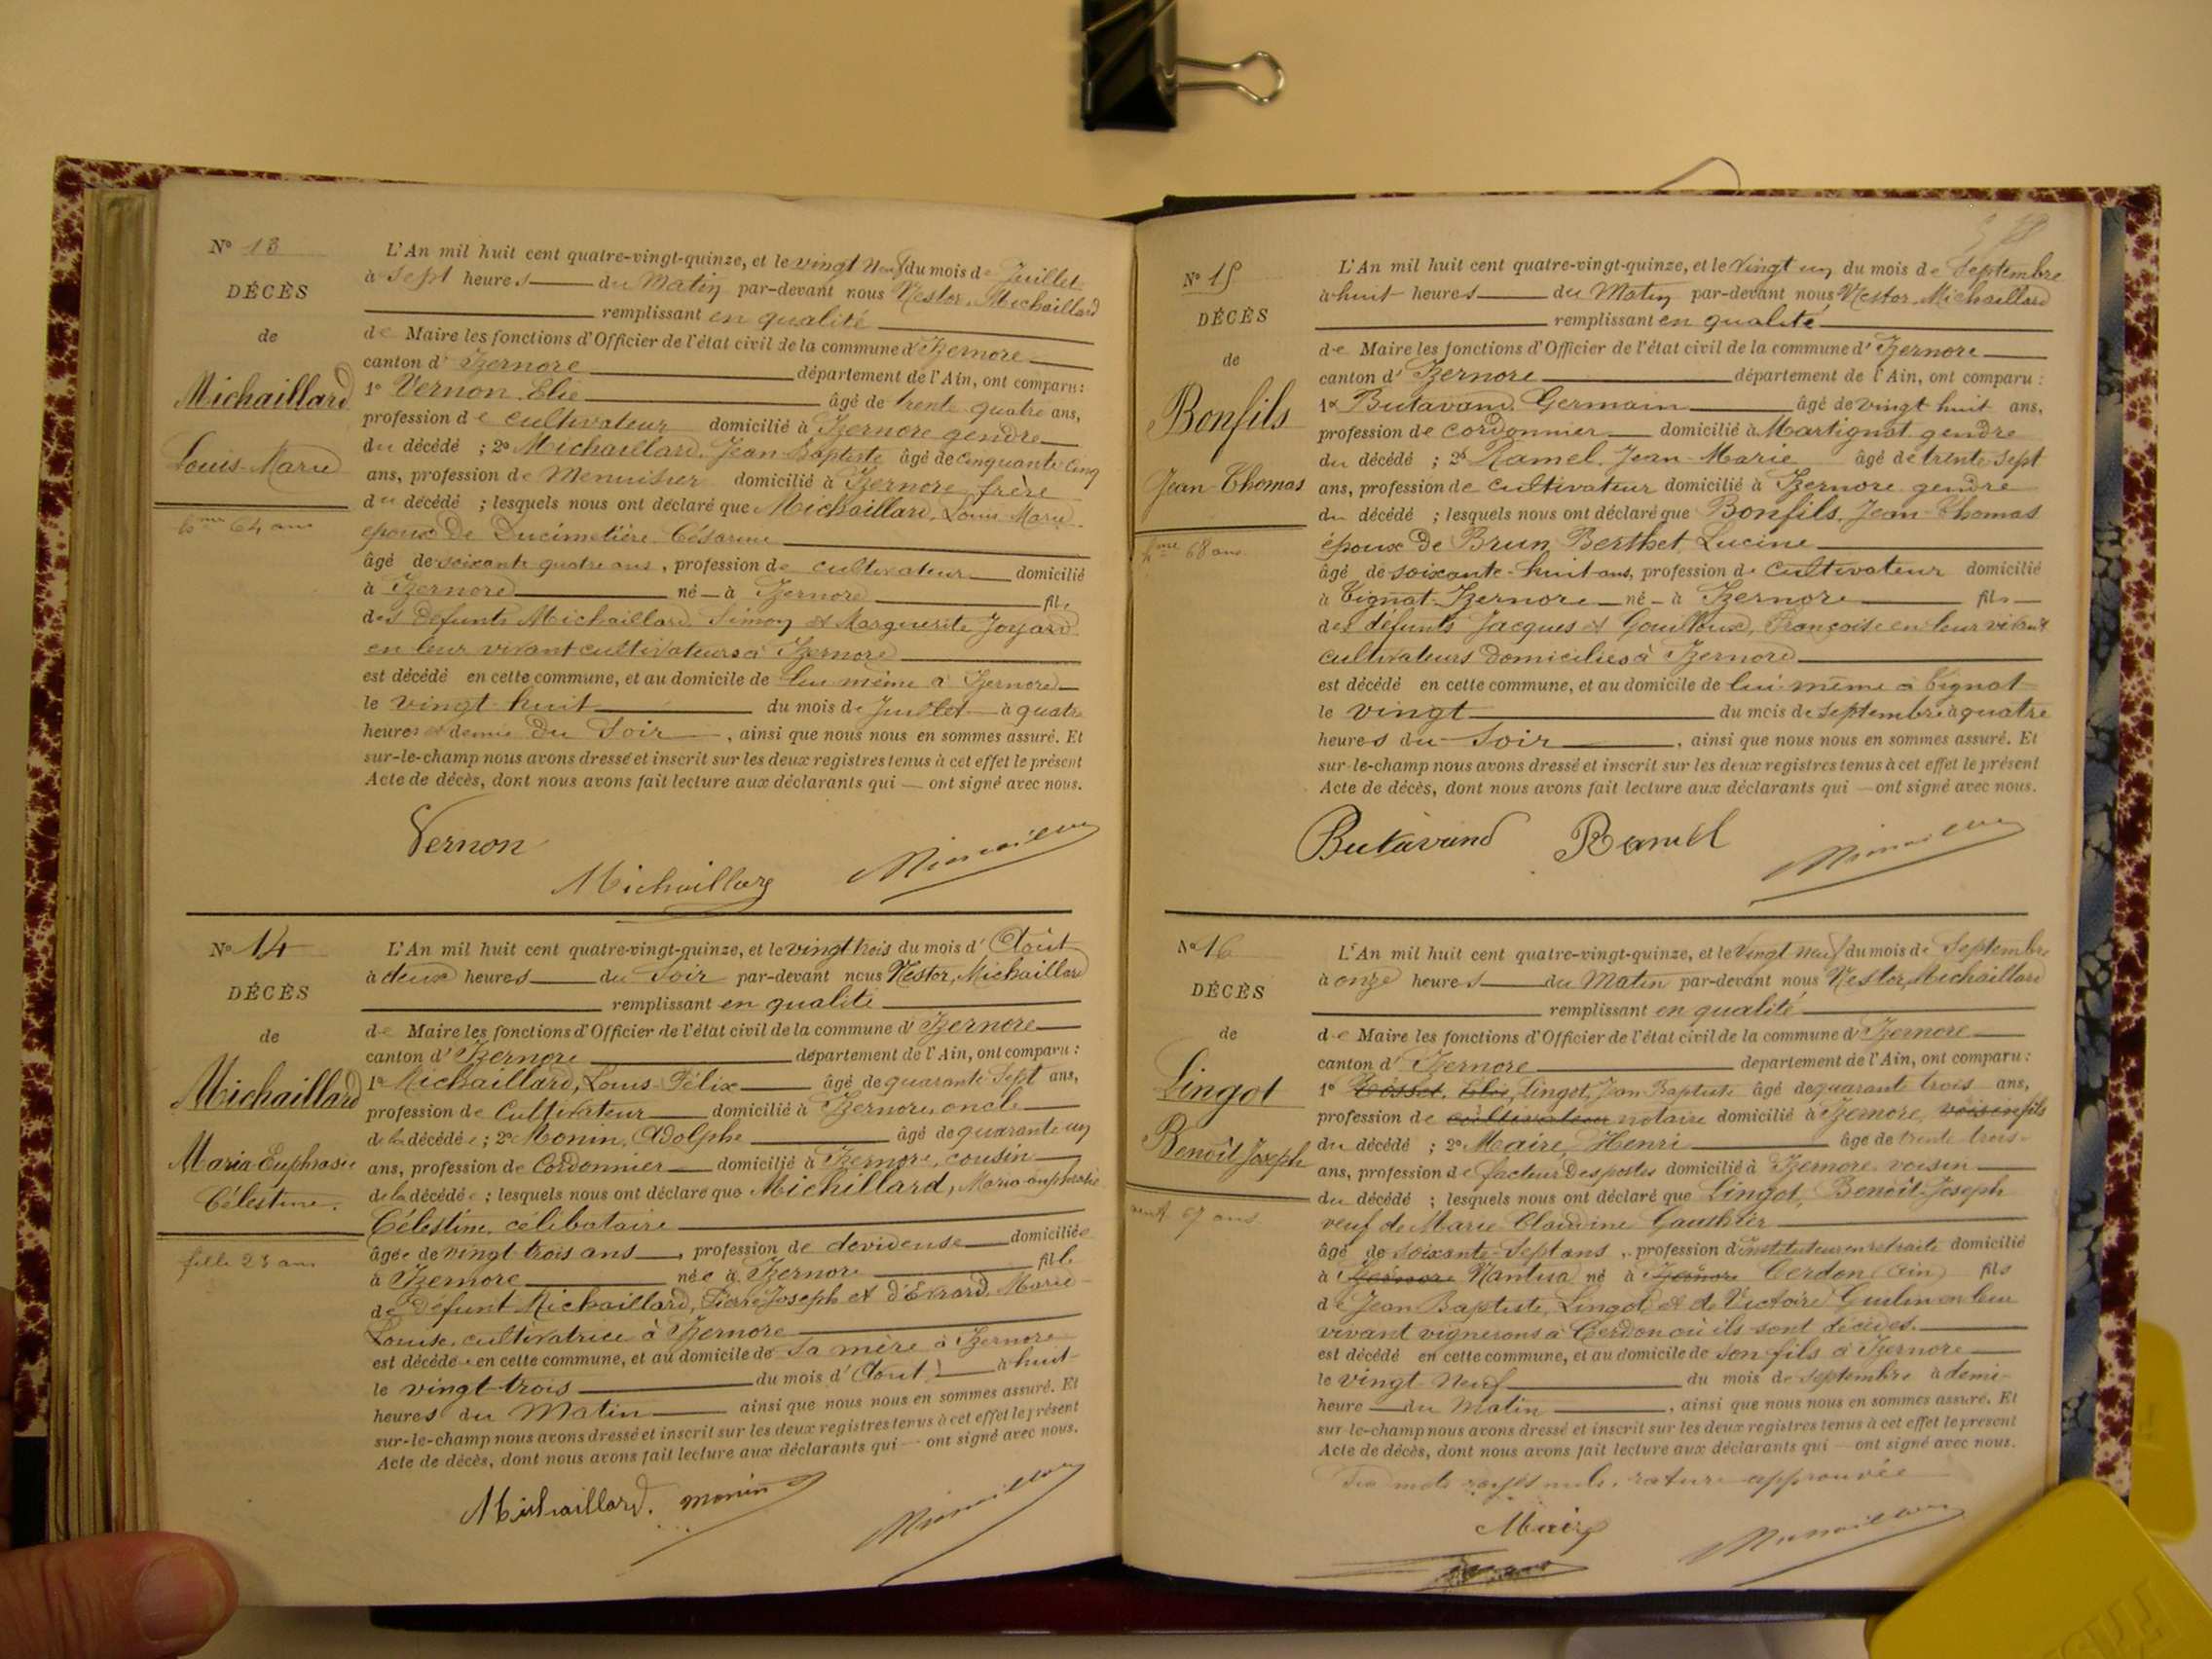 N° 13
DÉCÈS
de
Michaillard
Louis Marie
hme 64 ans
L'An mil huit cent quatre-vingt-quinze, et le vingt neuf du mois de Juillet
à sept heures du Matin par-devant nous Nestor Michaillard
remplissant en qualité
de Maire les fonctions d'Officier de l'état civil de la commune d'Izernore
canton d'Izernore département de l'Ain, ont comparu :
1° Vernon Elie âgé de trente quatre ans,
profession de cultivateur domicilié à Izernore gendre
du décédé ; 2° Michaillard, Jean Baptiste âgé de cinquante cinq
ans, profession de Menuisier domicilié à Izernore frère
du décédé ; lesquels nous ont déclaré que Michaillard, Louis Marie
époux de Ducimetière Césarine
âgé de soixante quatre ans, profession de cultivateur domicilié
à Izernore né à Izernore fils
des défunts Michaillard Simon et Marguerite Joyard
en leur vivant cultivateurs à Izernore
est décédé en cette commune, et au domicile de lui même à Izernore
le vingt huit du mois de Juillet à quatre
heures et demie du Soir, ainsi que nous nous en sommes assuré. Et
sur-le-champ nous avons dressé et inscrit sur les deux registres tenus à cet effet le présent
Acte de décès, dont nous avons fait lecture aux déclarants qui ont signé avec nous.
Vernon
Michaillard
N° 14
DÉCÈS
de
Michaillard
Maria Euphrasie
Célestine.
fille 23 ans
L'An mil huit cent quatre-vingt-quinze, et le vingt trois du mois d'Août
à deux heures du Soir par-devant nous Nestor, Michaillard
remplissant en qualité
de Maire les fonctions d'Officier de l'état civil de la commune d'Izernore
canton d'Izernore département de l'Ain, ont comparu :
1° Michaillard, Louis Félix âgé de quarante Sept ans,
profession de Cultivateur domicilié à Izernore, oncle
de la décédée ; 2° Monin, Adolphe âgé de quarante un
ans, profession de Cordonnier domicilié à Izernore, cousin
de la décédée ; lesquels nous ont déclaré que Michillard, Maria euphrasie
Célestine, célibataire
âgée de vingt trois ans, profession de devideuse domiciliée
à Izernore née à Izernore fille
de défunt Michaillard, Pierre Joseph et d'Evrard Marie
Louise, cultivatrice à Izernore
est décédée en cette commune, et au domicile de sa mère à Izernore
le vingt-trois du mois d'Août à huit
heures du Matin ainsi que nous nous en sommes assuré. Et
sur-le-champ nous avons dressé et inscrit sur les deux registres tenus à cet effet le présent
Acte de décès, dont nous avons fait lecture aux déclarants qui ont signé avec nous.
Michaillard. monin
N° 15
DÉCÈS
de
Bonfils
Jean-Thomas
hme 68 ans
L'An mil huit cent quatre-vingt-quinze, et le Vingt un du mois de Septembre
à huit heures du Matin par-devant nous Nestor Michaillard
remplissant en qualité
de Maire les fonctions d'Officier de l'état civil de la commune d'Izernore
canton d'Izernore département de l'Ain, ont comparu :
1° Butavand, Germain âgé de vingt huit ans,
profession de cordonnier domicilié à Martignat gendre
du décédé ; 2° Ramel, Jean-Marie âgé de trente sept
ans, profession de cultivateur domicilié à Izernore gendre
du décédé ; lesquels nous ont déclaré que Bonfils, Jean-Thomas
époux de Brun Berthet, Lucine
âgé de soixante-huit ans, profession de cultivateur domicilié
à Tignat-Izernore né à Izernore fils
des défunts Jacques et Françoise en leur vivant
cultivateurs domiciliés à Izernore
est décédé en cette commune, et au domicile de lui même à Tignat
le vingt du mois de septembre à quatre
heures du Soir, ainsi que nous nous en sommes assuré. Et
sur-le-champ nous avons dressé et inscrit sur les deux registres tenus à cet effet le présent
Acte de décès, dont nous avons fait lecture aux déclarants qui ont signé avec nous.
Butavand Ramel
N° 16
DÉCÈS
de
Lingot
Benoît Joseph
veuf 67 ans
L'An mil huit cent quatre-vingt-quinze, et le Vingt neuf du mois de Septembre
à onze heures du Matin par-devant nous Nestor, Michaillard
remplissant en qualité
de Maire les fonctions d'Officier de l'état civil de la commune d'Izernore
canton d'Izernore département de l'Ain, ont comparu :
1° Lingot, Jean Baptiste âgé de quarante trois ans,
profession de cultivateur notaire domicilié à Izernore, voisin fils
du décédé ; 2° Maire, Henri âgé de trente trois
ans, profession de facteur des postes domicilié à Izernore voisin
du décédé ; lesquels nous ont déclaré que Lingot, Benoît-Joseph
veuf de Marie Claudine Gauthier
âgé de soixante-Sept ans, profession d'instituteur en retraite domicilié
à Izernore Nantua né à Izernore Cerdon (Ain) fils
de Jean Baptiste, Lingot et de Victoire Guilin en leur
vivant vignerons à Cerdon où ils sont décédés.
est décédé en cette commune, et au domicile de son fils à Izernore
le vingt-Neuf du mois de septembre à demi-
heure du Matin, ainsi que nous nous en sommes assuré. Et
sur-le-champ nous avons dressé et inscrit sur les deux registres tenus à cet effet le présent
Acte de décès, dont nous avons fait lecture aux déclarants qui ont signé avec nous.
mots rayés nuls, rature approuvée
Maire